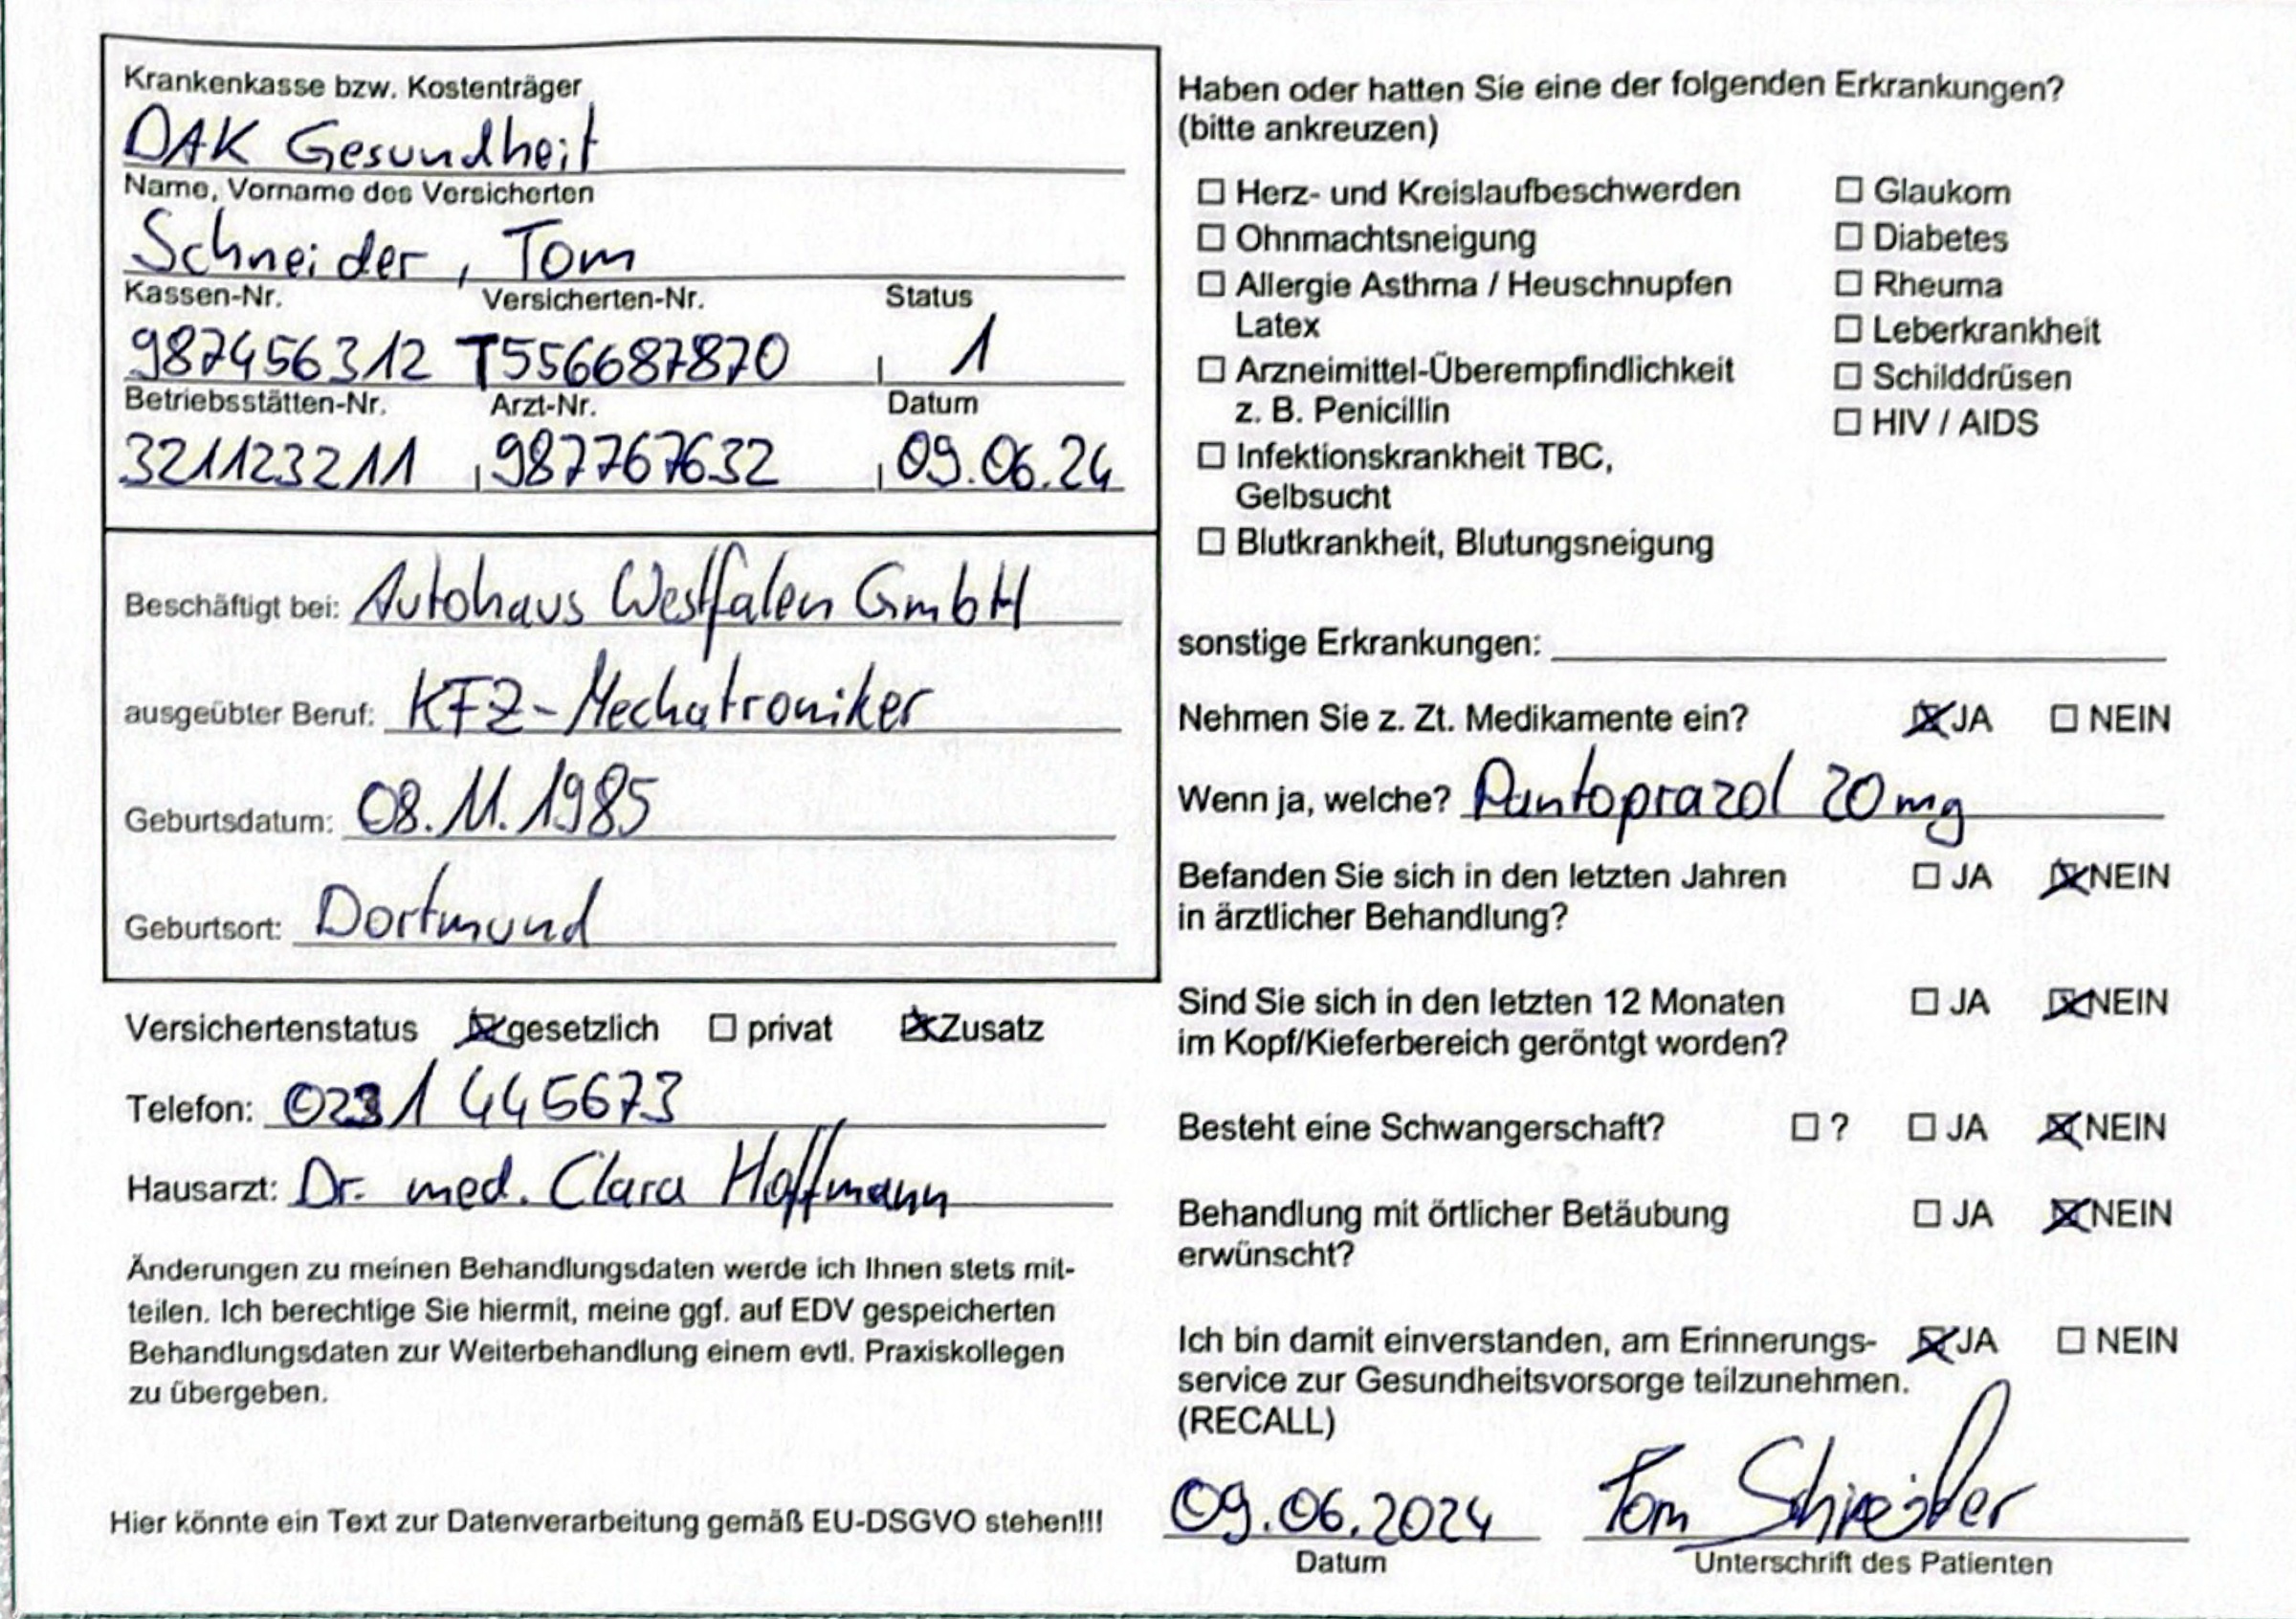 Krankenkasse bzw. Kostenträger
DAK Gesundheit
Name, Vorname des Versicherten
Schneider, Tom
Kassen-Nr. Versicherten-Nr. Status
987456312 T556687870 1
Betriebsstätten-Nr. Arzt-Nr. Datum
321123211 987767632 09.06.24
Beschäftigt bei: Autohaus Westfalen GmbH
ausgeübter Beruf: KFZ-Mechatroniker
Geburtsdatum: 08.11.1985
Geburtsort: Dortmund
Versichertenstatus ☒ gesetzlich ☐ privat ☒ Zusatz
Telefon: 0231 445673
Hausarzt: Dr. med. Clara Hoffmann
Änderungen zu meinen Behandlungsdaten werde ich Ihnen stets mit-
teilen. Ich berechtige Sie hiermit, meine ggf. auf EDV gespeicherten
Behandlungsdaten zur Weiterbehandlung einem evtl. Praxiskollegen
zu übergeben.
Hier könnte ein Text zur Datenverarbeitung gemäß EU-DSGVO stehen!!!
Haben oder hatten Sie eine der folgenden Erkrankungen?
(bitte ankreuzen)
☐ Herz- und Kreislaufbeschwerden
☐ Ohnmachtsneigung
☐ Allergie Asthma / Heuschnupfen
Latex
☐ Arzneimittel-Überempfindlichkeit
z. B. Penicillin
☐ Infektionskrankheit TBC,
Gelbsucht
☐ Blutkrankheit, Blutungsneigung
☐ Glaukom
☐ Diabetes
☐ Rheuma
☐ Leberkrankheit
☐ Schilddrüsen
☐ HIV / AIDS
sonstige Erkrankungen:
Nehmen Sie z. Zt. Medikamente ein? ☒ JA ☐ NEIN
Wenn ja, welche? Pantoprazol 20mg
Befanden Sie sich in den letzten Jahren ☐ JA ☒ NEIN
in ärztlicher Behandlung?
Sind Sie sich in den letzten 12 Monaten ☐ JA ☒ NEIN
im Kopf/Kieferbereich geröntgt worden?
Besteht eine Schwangerschaft? ☐ ? ☐ JA ☒ NEIN
Behandlung mit örtlicher Betäubung ☐ JA ☒ NEIN
erwünscht?
Ich bin damit einverstanden, am Erinnerungs- ☒ JA ☐ NEIN
service zur Gesundheitsvorsorge teilzunehmen.
(RECALL)
09.06.2024 Tom Schneider
Datum Unterschrift des Patienten